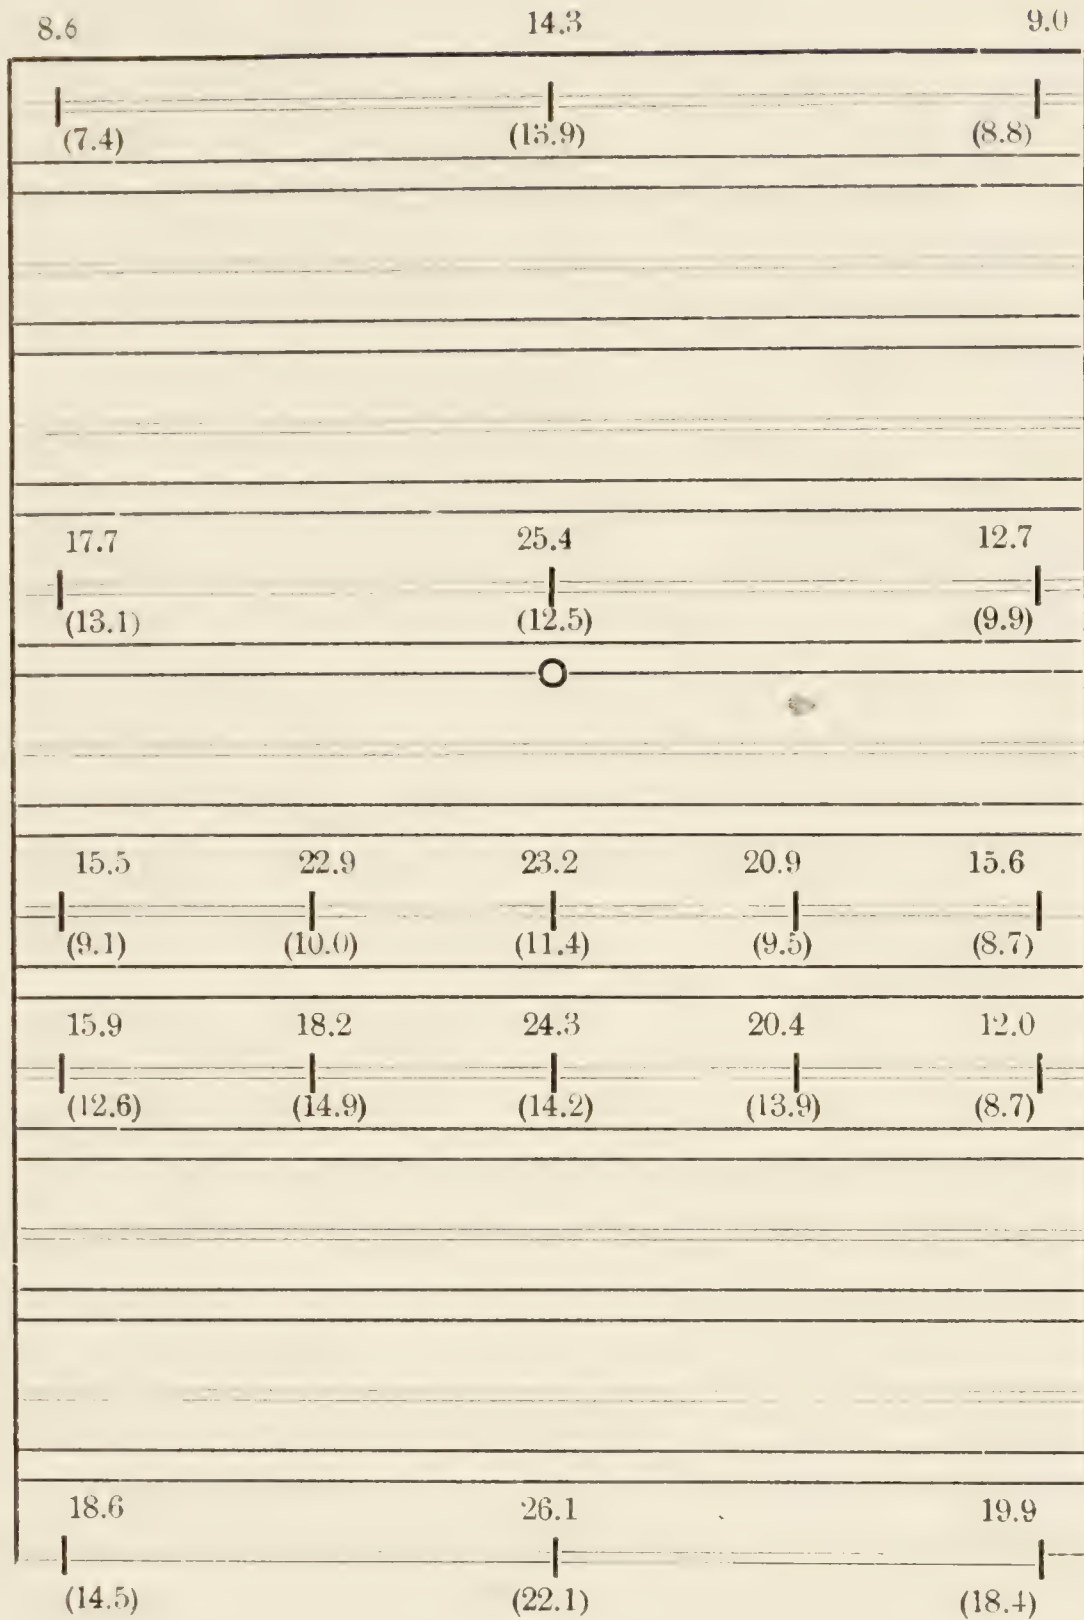 8.6 14.3 9.0
(7.4) (13.9) (8.8)
17.7 25.4 12.7
(13.1) (12.5) (9.9)
15.5 22.9 23.2 20.9 15.6
(9.1) (10.0) (11.4) (9.5) (8.7)
15.9 18.2 24.3 20.4 12.0
(12.6) (14.9) (14.2) (13.9) (8.7)
18.6 26.1 19.9
(14.5) (22.1) (18.4)